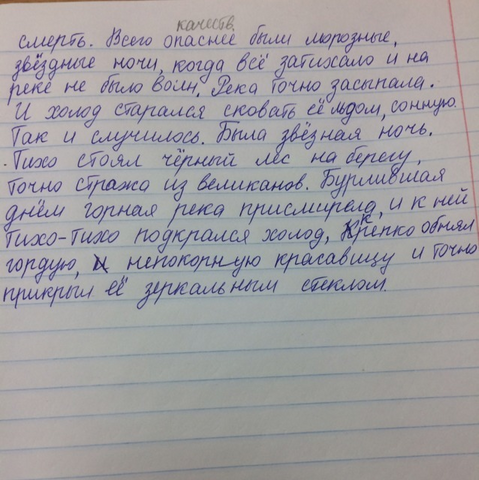 качеств.
смерть. Всего опаснее были морозные,
звёздные ночи, когда всё затихало и на
реке не было волн. Река точно засыпала.
И холод старался сковать её льдом, сонную.
Так и случилось. Была звёзная ночь.
Тихо стоял чёрный лес на берегу,
точно стража из великанов. Бурлившая
днём горная река присмирела, и к ней
тихо-тихо подкрался холод, крепко обнял
гордую, непокорную красавицу и точно
прикрыл её зеркальным стеклом.